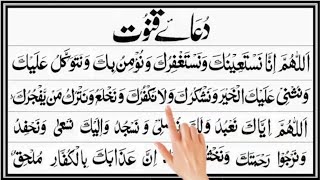 دُعائے قنوت
اَللّٰهُمَّ اِنَّا نَسْتَعِيْنُكَ وَنَسْتَغْفِرُكَ وَنُؤْمِنُ بِكَ وَنَتَوَكَّلُ عَلَيْكَ
وَنُثْنِیْ عَلَيْكَ الْخَيْرَ وَنَشْكُرُكَ وَلَا نَكْفُرُكَ وَنَخْلَعُ وَنَتْرُكُ مَنْ يَّفْجُرُكَ
اَللّٰهُمَّ اِيَّاكَ نَعْبُدُ وَلَكَ نُصَلِّیْ وَنَسْجُدُ وَاِلَيْكَ نَسْعٰی وَنَحْفِدُ
وَنَرْجُوْا رَحْمَتَكَ وَنَخْشٰی اِنَّ عَذَابَكَ بِالْكُفَّارِ مُلْحِقٌ